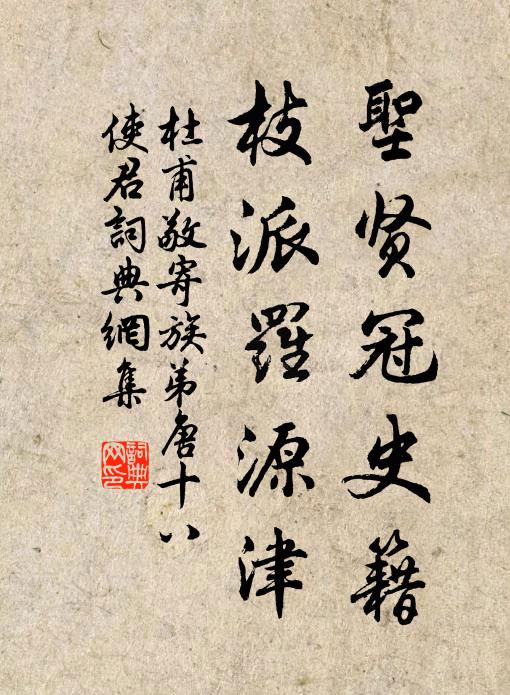 聖贤冠史籍
枝派羅源津
杜甫敬寄族弟唐十八
使君詞典網集
詞典
网印